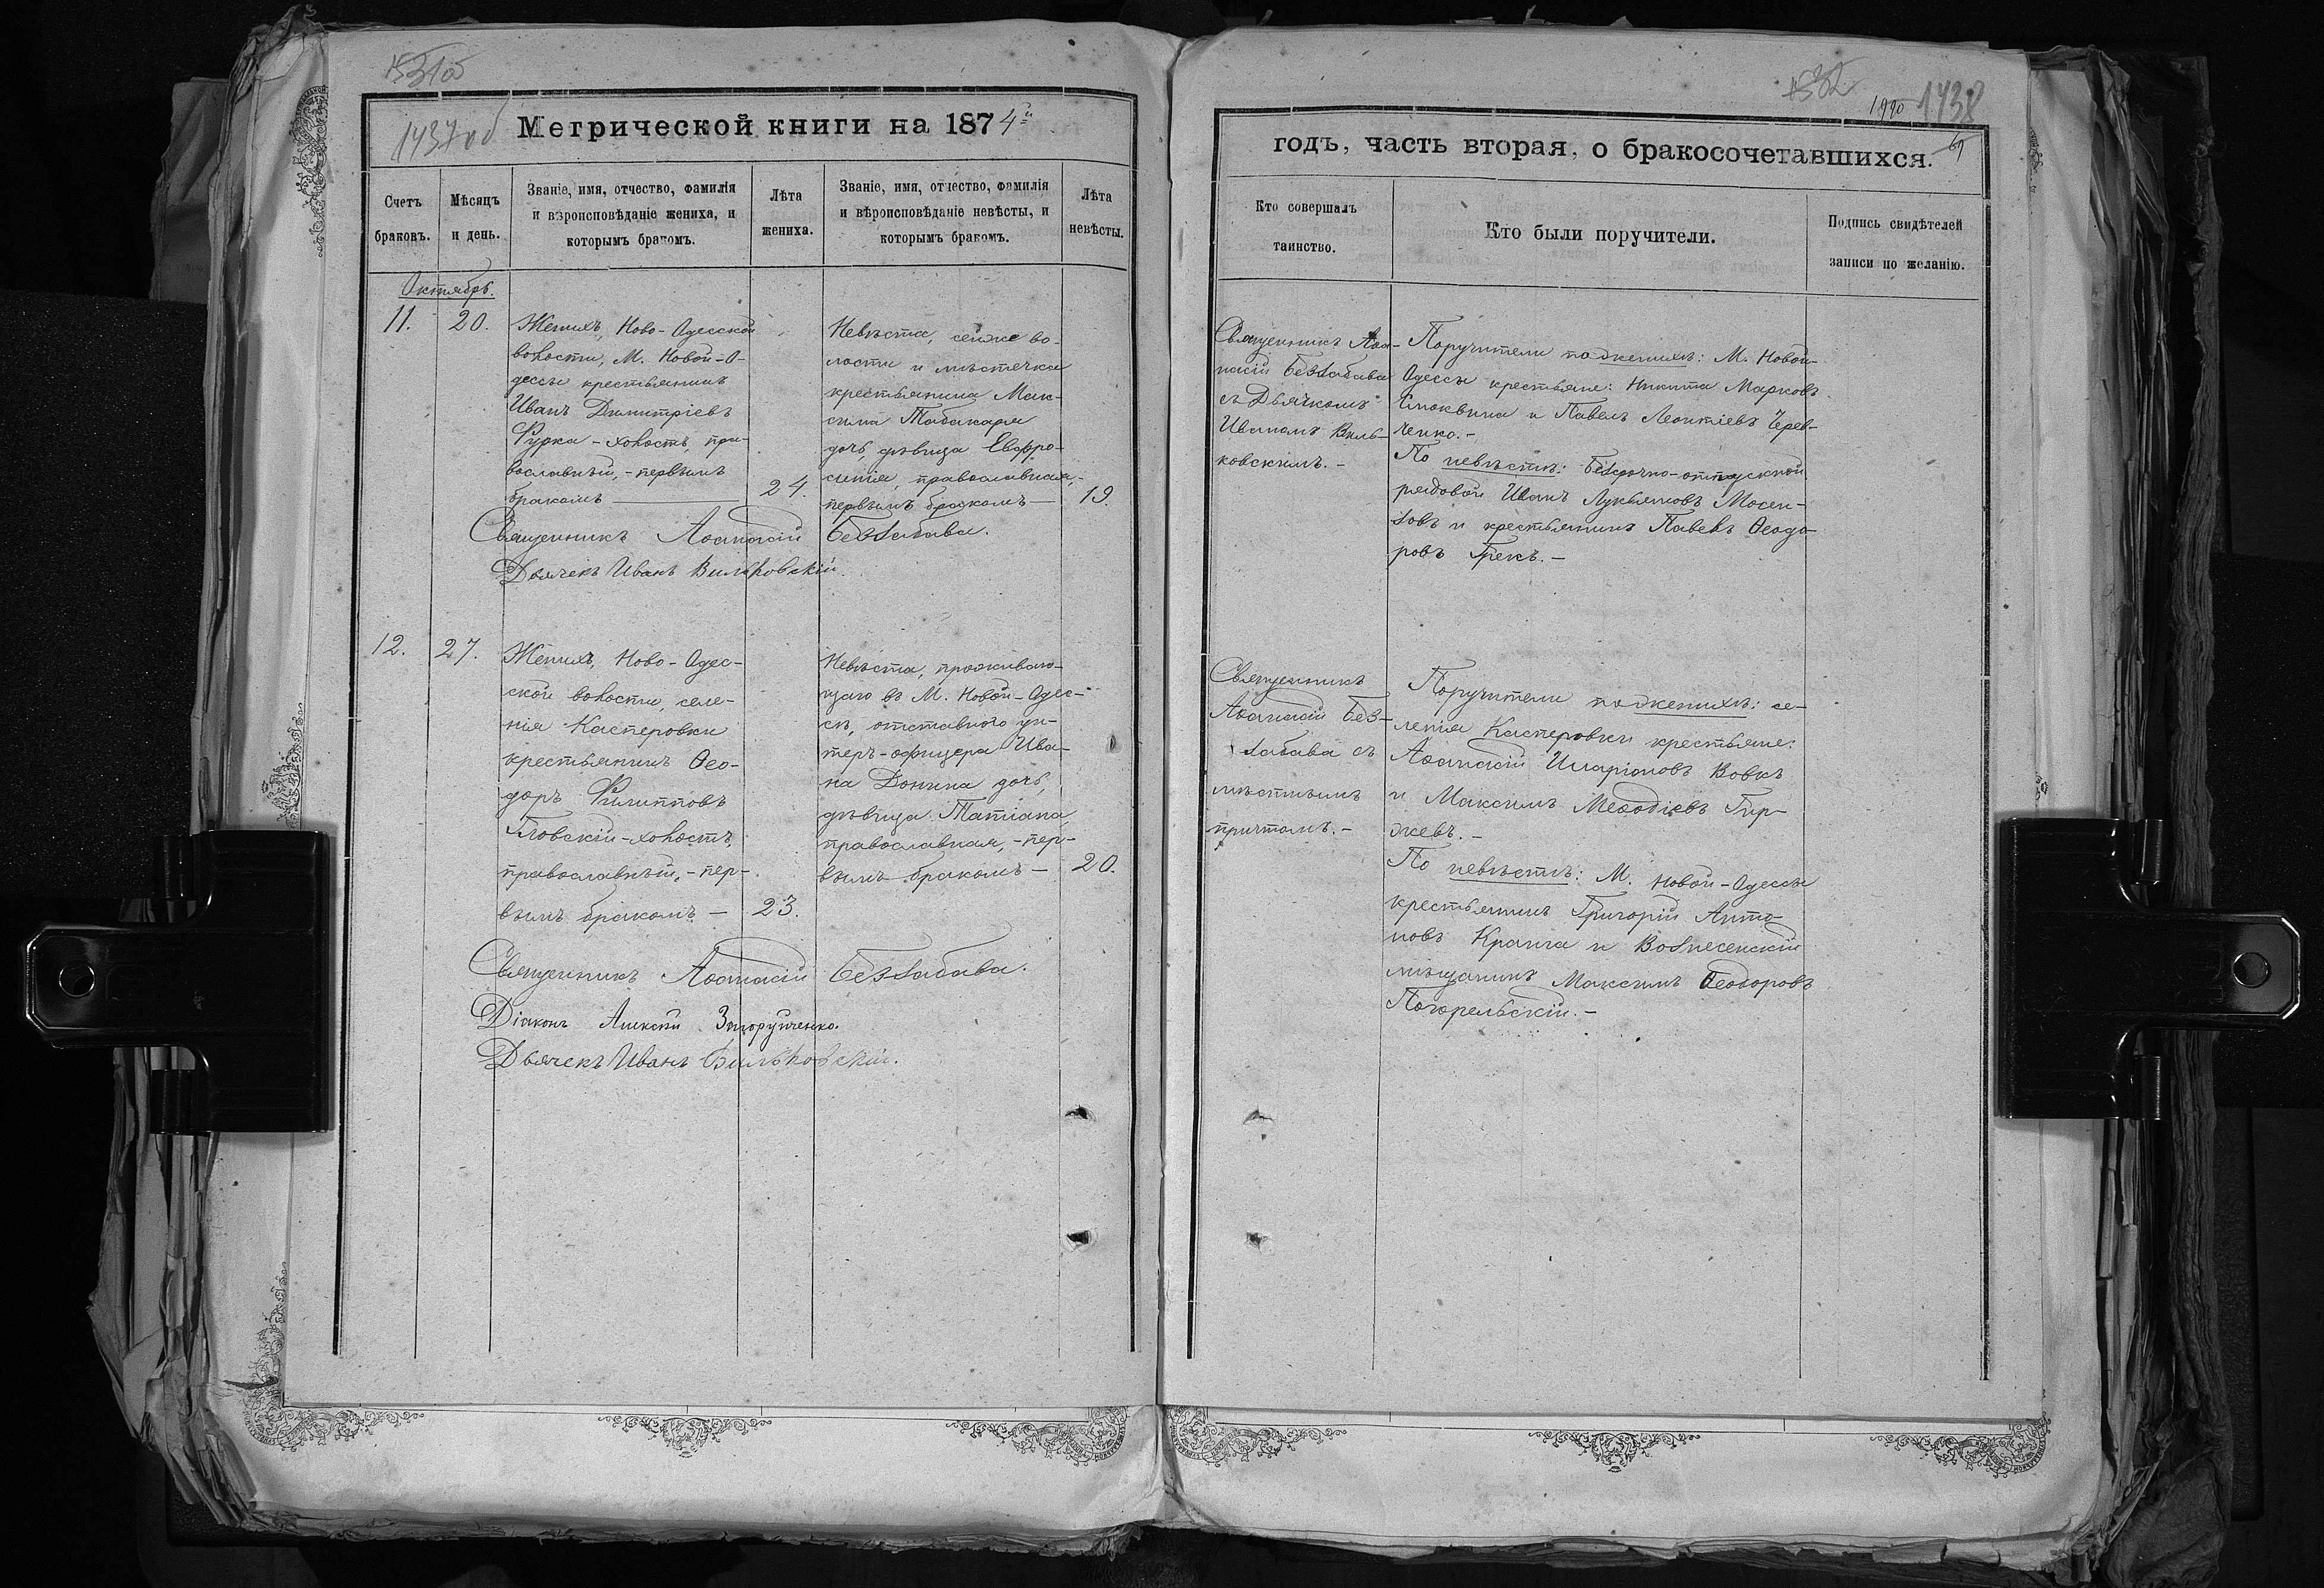 1437 об
Метрической книги на 1874й
Счетъ браковъ.
Мѣсяцъ и день.
Званіе, имя, отчество, фамилія и вѣроисповѣданіе жениха, и которымъ бракомъ.
Лѣта жениха.
Званіе, имя, отчество, фамилія и вѣроисповѣданіе невѣсты, и которымъ бракомъ.
Лѣта невѣсты.
Октябрь.
11.
20.
Женихъ, Ново-Одесской
волости, М. Новой-О-
дессы крестьянинъ
Иванъ Димитріевъ
Фурка - холостъ, пра-
вославный, - первымъ
бракомъ
24.
Невѣста, сейже во-
лости и мѣстечка
крестьянина Мак-
сима Табакаря
дочь, дѣвица Евфро-
синія, православная,-
первымъ бракомъ —
19.
Священникъ Аѳанасій Беззабава.
Дьячекъ Иванъ Вильковскій.
12.
27.
Женихъ, Ново-Одес-
ской волости, селе-
нія Касперовки
крестьянинъ Ѳео-
доръ Филипповъ
холостъ,
православный, - пер-
вымъ бракомъ —
23.
Невѣста, проживаю-
щаго въ М. Новой-Одес-
сѣ, отставного ун-
теръ-офицера Ива-
на Донина дочь,
дѣвица Татіана,
православная, - пер-
вымъ бракомъ —
20.
Священникъ Аѳанасій Беззабава.
Діаконъ Алексѣй
Дьячекъ Иванъ Вильковскій.
1532
1990
1438
годъ, часть вторая, о бракосочетавшихся.
Кто совершалъ таинство.
Кто были поручители.
Подпись свидѣтелей записи по желанію.
Священникъ Аѳа-
насій Беззабава
съ Дьячкомъ
Иваномъ Виль-
ковскимъ. -
Поручители по женихѣ: М. Новой-
Одессы крестьяне: Никита Марковъ
Смоквина и Павелъ Леонтіевъ Черев-
ченко. -
По невѣстѣ: Безсрочно-отпускной
рядовой Иванъ Лукьяновъ Мосен-
зовъ и крестьянинъ Павелъ Ѳеодо-
ровъ Грекъ. -
Священникъ
Аѳанасій Без-
забава съ
мѣстнымъ
причтомъ. -
Поручители по женихѣ: се-
ленія Касперовки крестьяне:
Аѳанасій Иларіоновъ Вовкъ
и Максимъ Меѳодіевъ Гир-
жевъ. -
По невѣстѣ: М. Новой-Одессы
крестьянинъ Григорій Анто-
новъ Крапга и Вознесенскій
мѣщанинъ Максимъ Ѳеодоровъ
Погорельскій. -